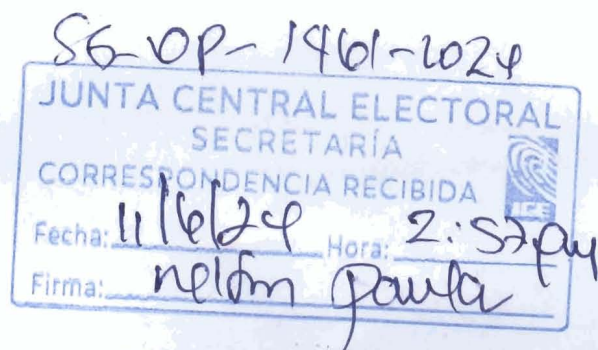 SG-OP-1461-2024
JUNTA CENTRAL ELECTORAL
SECRETARÍA
CORRESPONDENCIA RECIBIDA
JCE
Fecha: 11/6/24 Hora: 2:57pm
Firma: nelson paula